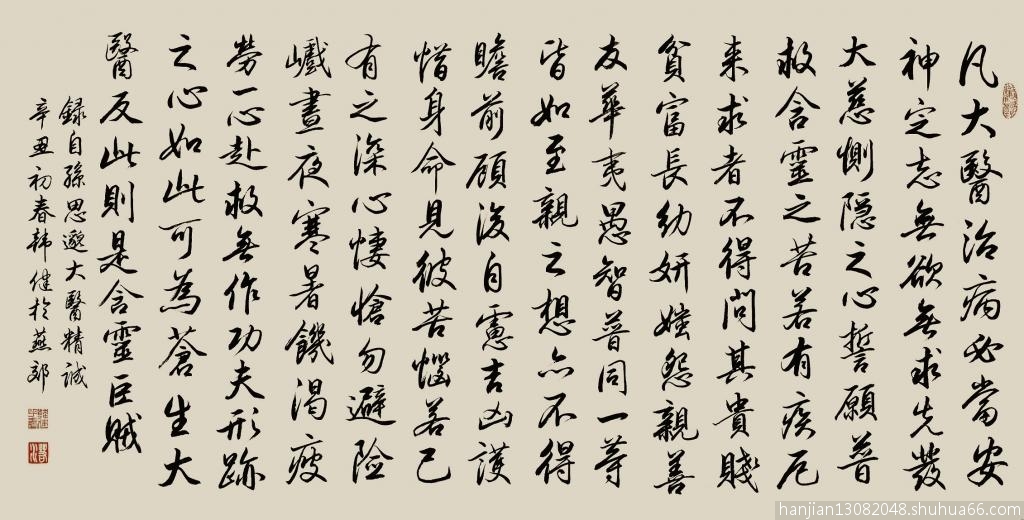 凡大醫治病必當安
神定志無欲無求先發
大慈惻隱之心誓願普
救含靈之苦若有疾厄
来求者不得問其貴賤
貧富長幼妍媸怨親善
友華夷愚智普同一等
皆如至親之想亦不得
瞻前顧後自慮吉凶護
惜身命見彼苦惱若己
有之深心悽愴勿避险
巇晝夜寒暑饑渴疲
勞一心赴救無作功夫形跡
之心如此可為蒼生大
醫反此則是含靈巨賊
録自孫思邈大醫精誠
辛丑初春韩健於燕郊
hanjian13082048.shuhua66.com